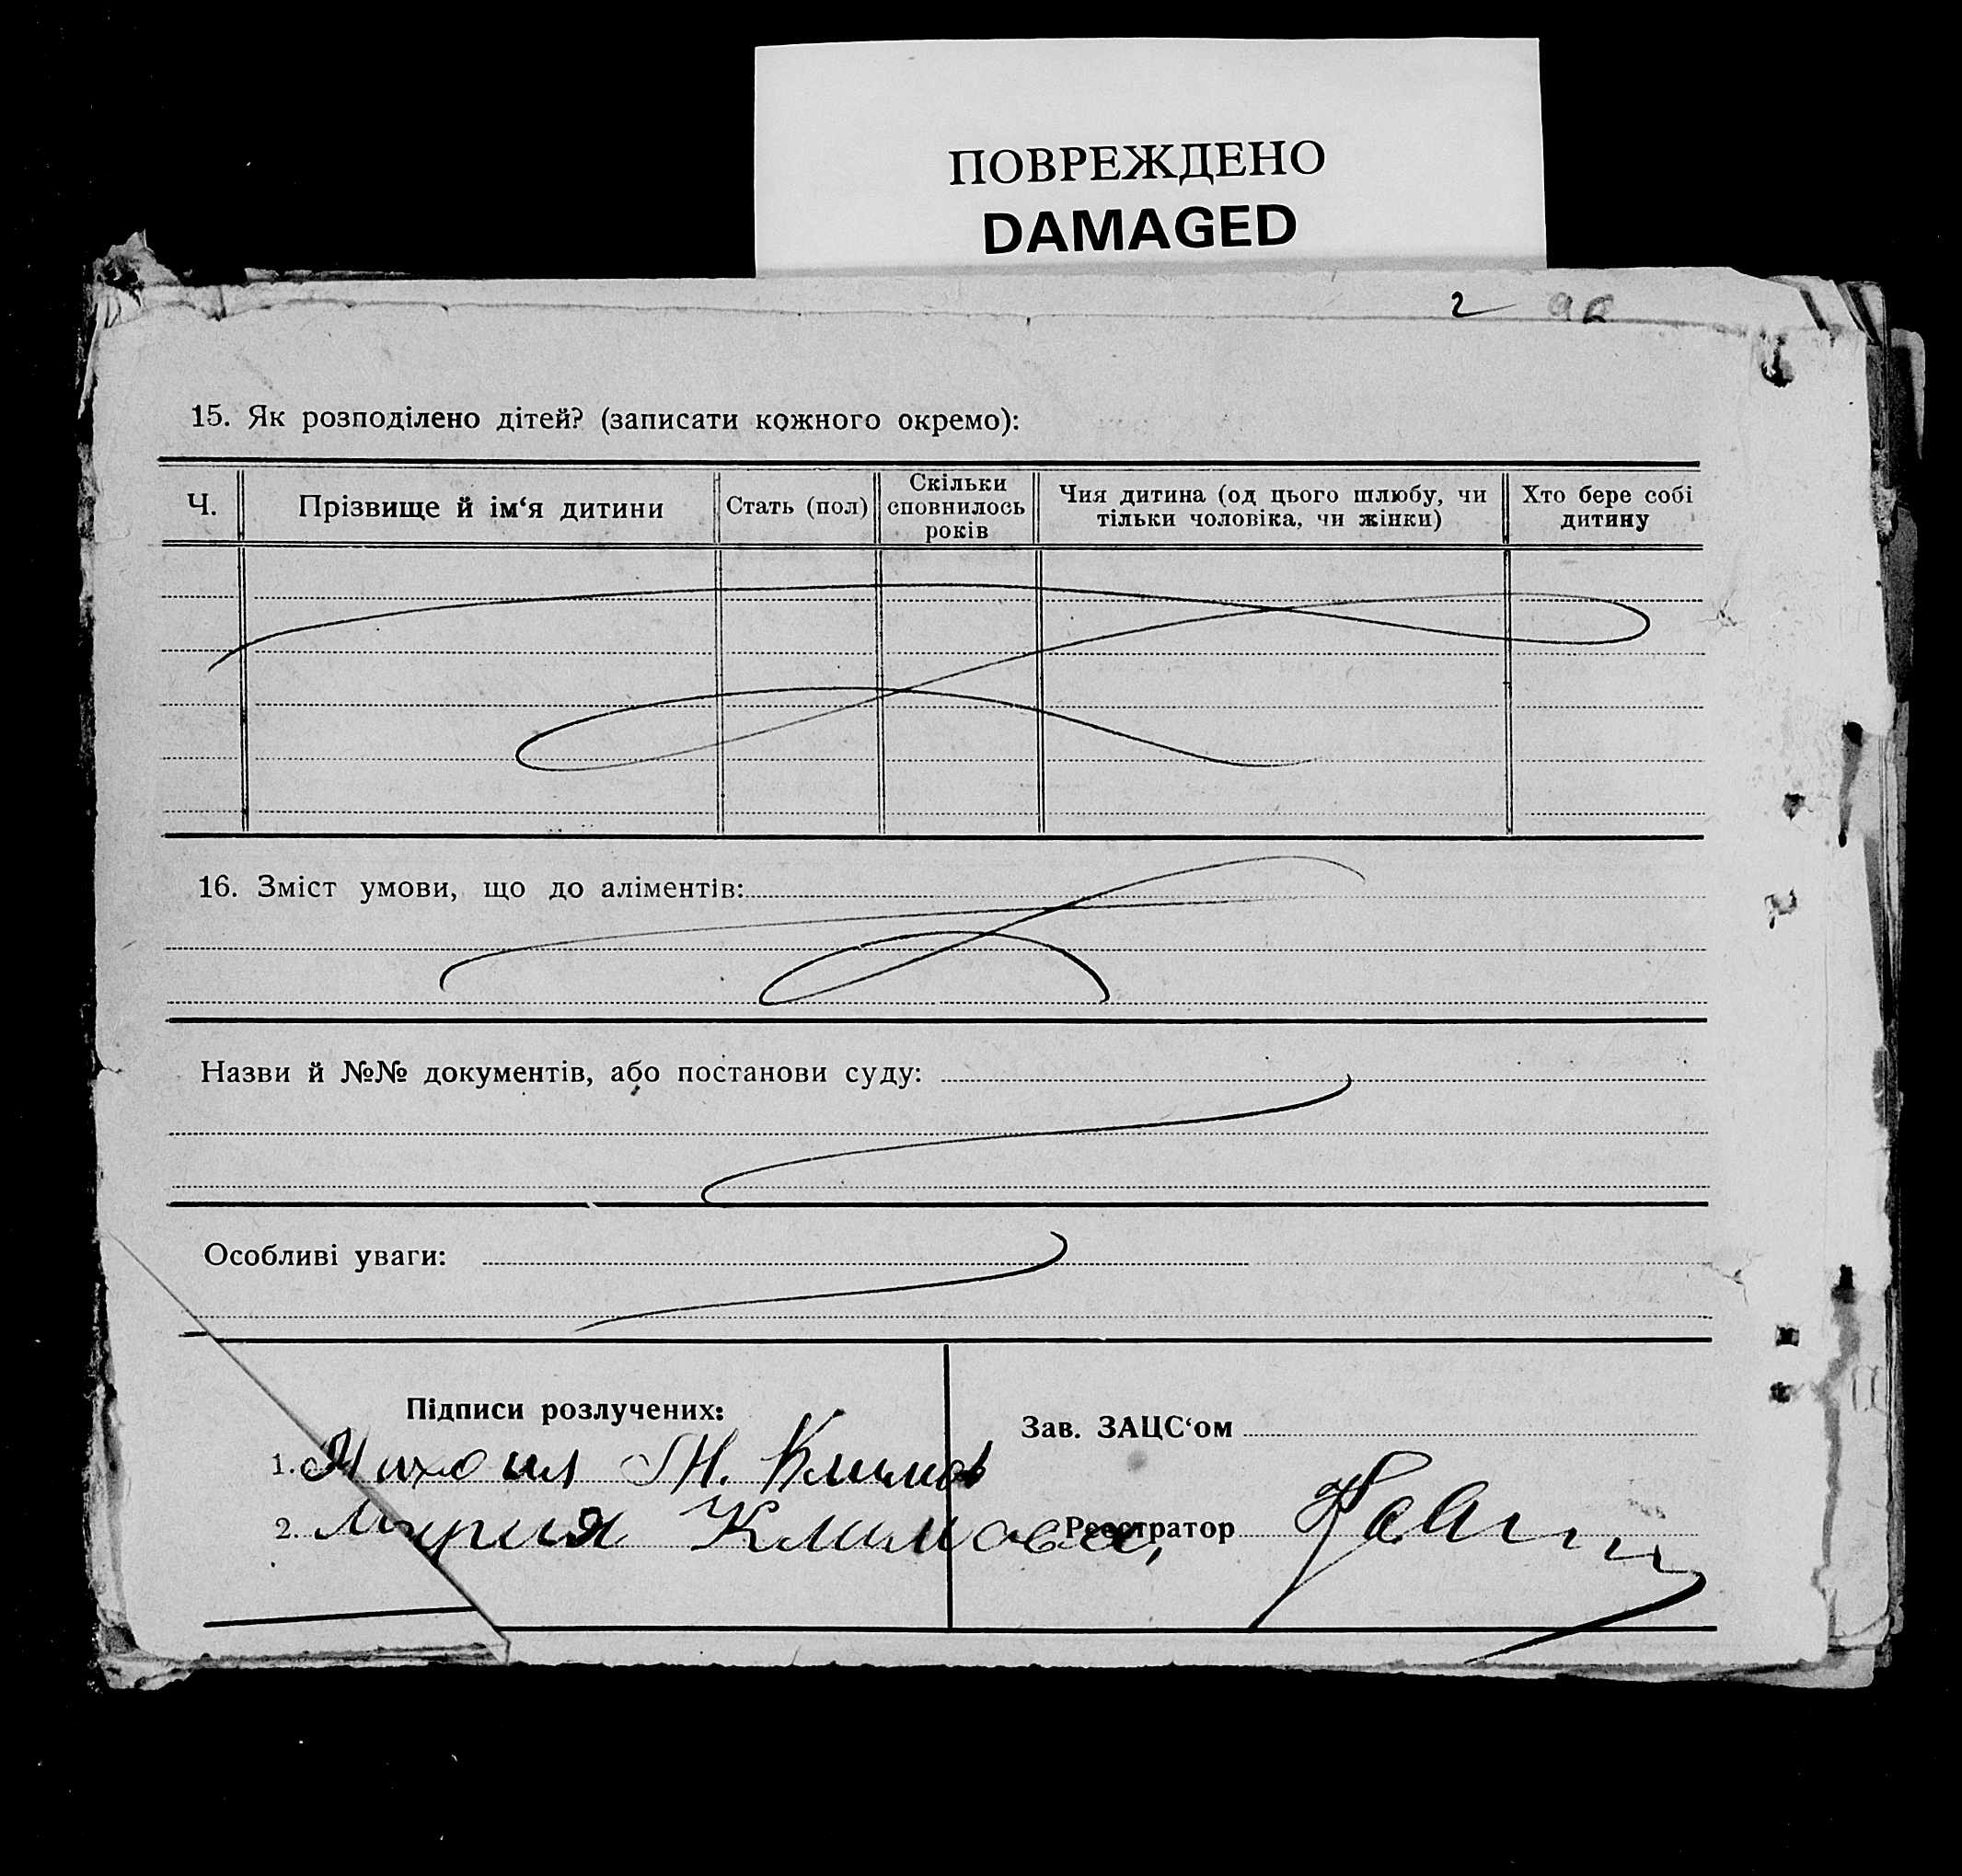 ПОВРЕЖДЕНО
DAMAGED
2 96
15. Як розподілено дітей? (записати кожного окремо):
Ч.
Прізвище й ім‘я дитини
Стать (пол)
Скільки
сповнилось
років
Чия дитина (од цього шлюбу, чи
тільки чоловіка, чи жінки)
Хто бере собі
дитину
16. Зміст умови, що до аліментів:
Назви й №№ документів, або постанови суду:
Особливі уваги:
Підписи розлучених:
1. Михаил Климов
2. Мария Климова
Зав. ЗАЦС‘ом
Реєстратор